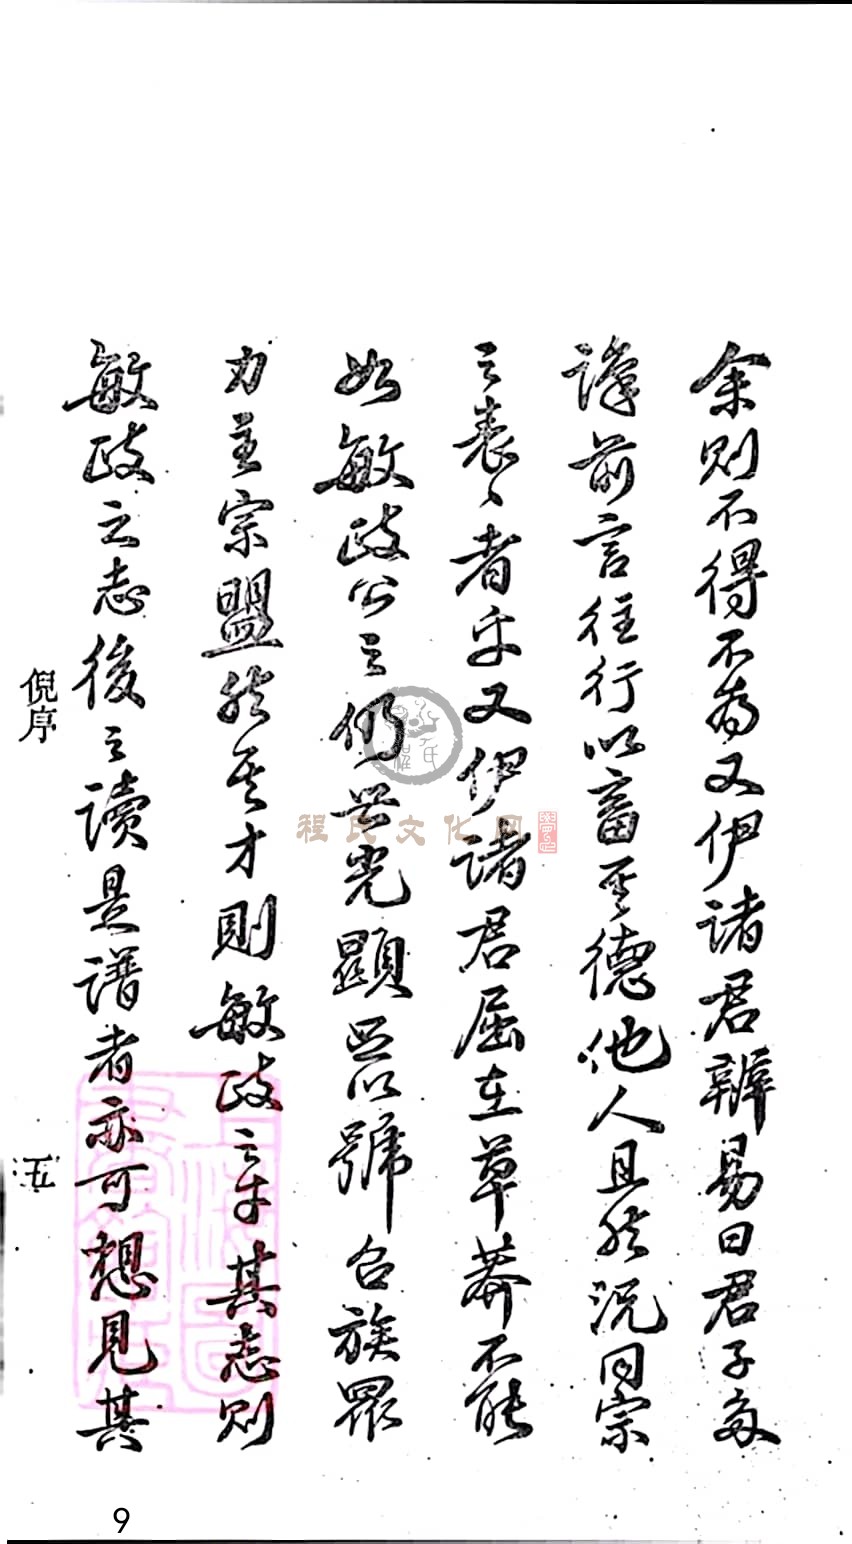 余則不得不為又伊諸君辨易曰君子多
識前言往行以畜其德他人且然況同宗
之表〻者乎又伊諸君屈在草莽不能
如敏政公之仍世光顯足以號召族眾
力主宗盟然其才則敏政之才其志則
敏政之志後之讀是譜者亦可想見其
倪序
五
9
程氏文化网